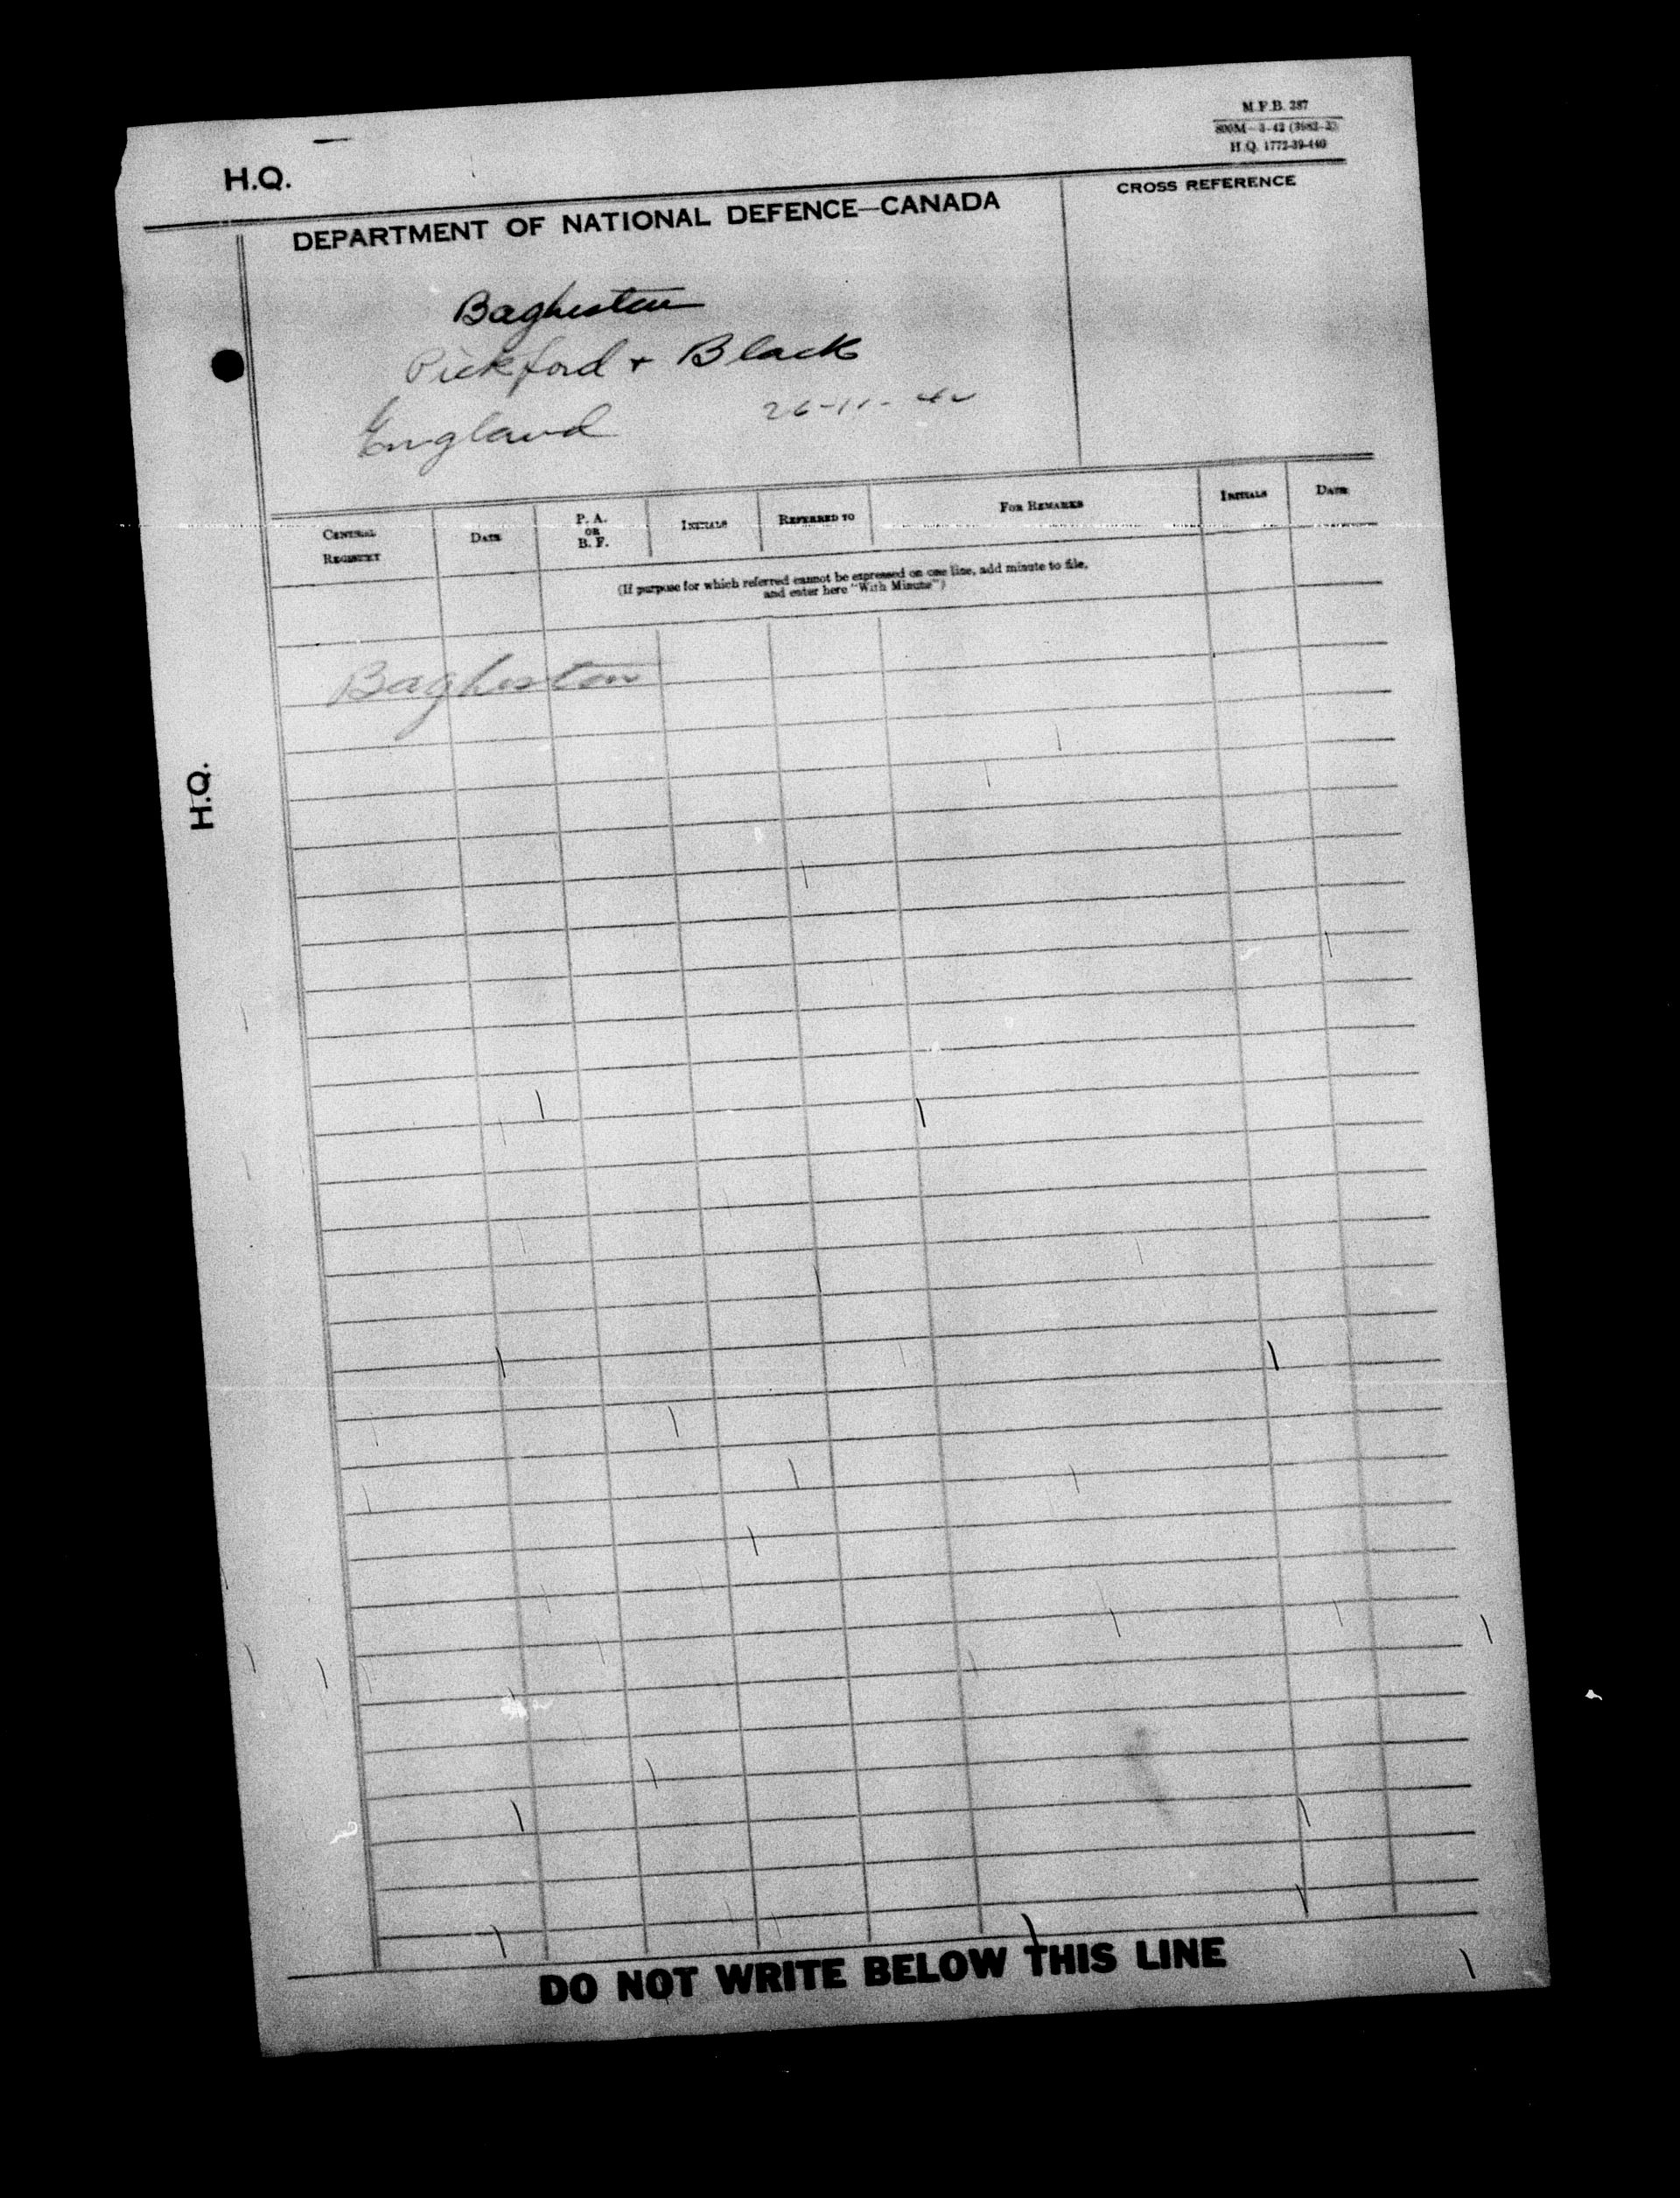 M.F.B. 287
800M—3-42 (3982-3)
H.Q. 1772-39-440
H.Q.
DEPARTMENT OF NATIONAL DEFENCE—CANADA
CROSS REFERENCE
Bagheston
Pickford + Black
England 26-11-42
CENTRAL REGISTRY
DATE
P. A. OR B. F.
INITIALS
REFERRED TO
FOR REMARKS
INITIALS
DATE
(If purpose for which referred cannot be expressed on one line, add minute to file,
and enter here "With Minute")
Bagheston
H.Q.
DO NOT WRITE BELOW THIS LINE